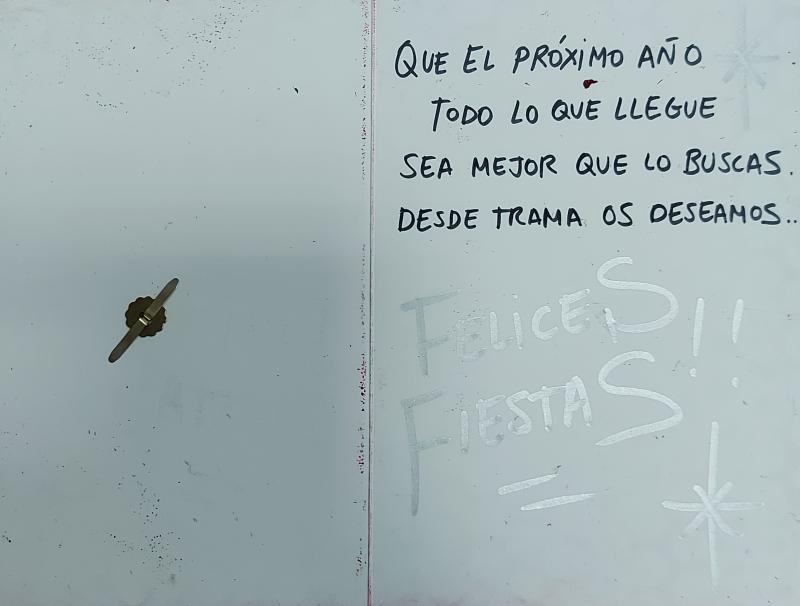 QUE EL PRÓXIMO AÑO
TODO LO QUE LLEGUE
SEA MEJOR QUE LO BUSCAS.
DESDE TRAMA OS DESEAMOS..
FELICES
FIESTAS!!